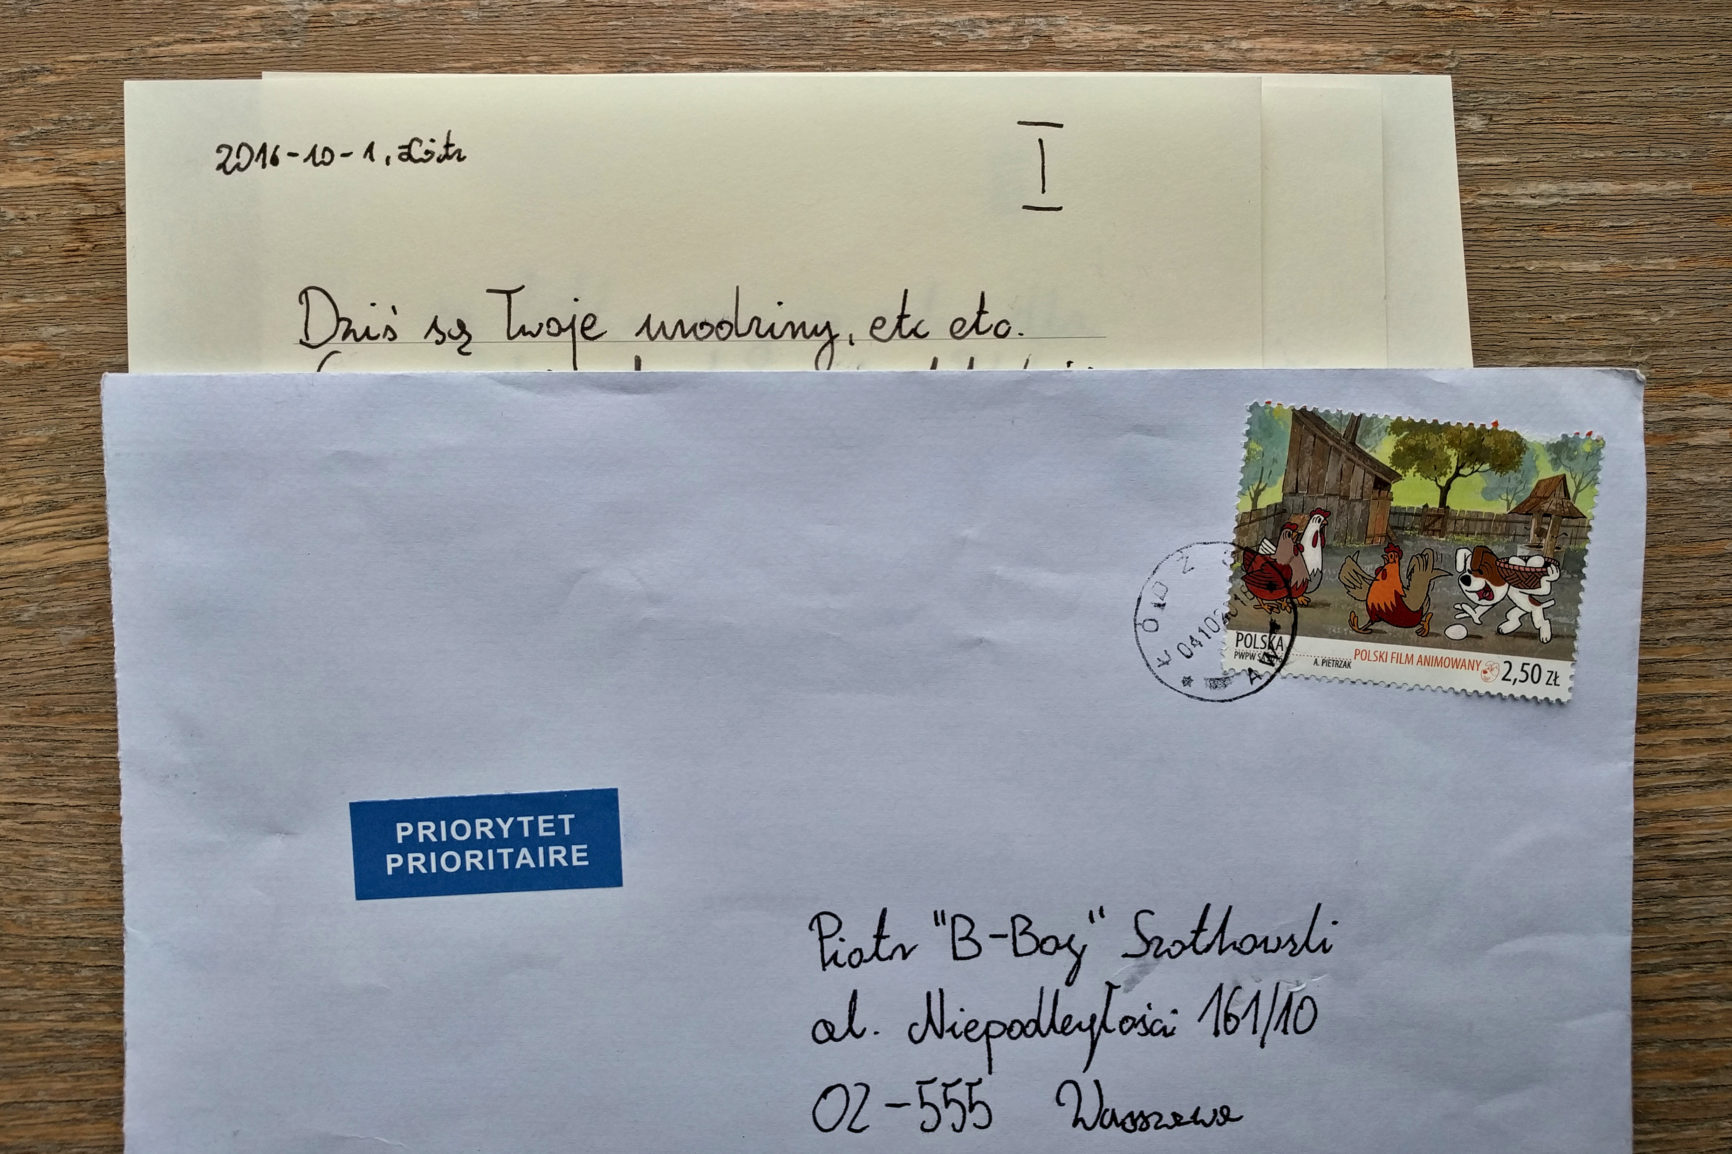 2016-10-1, Łódź
I
Dziś są Twoje urodziny, etc etc.
POLSKA
PWPW
A. PIETRZAK
POLSKI FILM ANIMOWANY
2,50 ZŁ
ŁÓDŹ
0410
PRIORYTET
PRIORITAIRE
Piotr "B-Boy" Szotkowski
al. Niepodległości 161/10
02-555 Warszawa